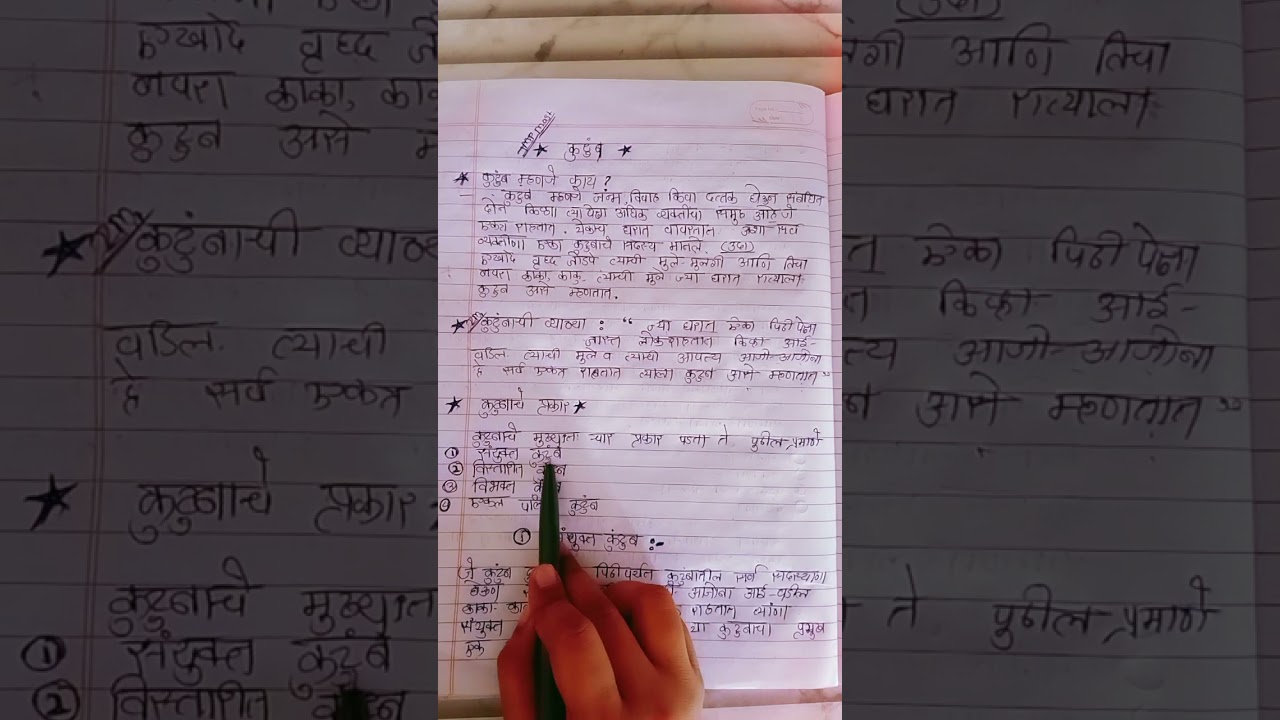 ★ कुटुंब ★
★ कुटुंब म्हणजे काय ?
कुटुंब म्हणजे जन्म, विवाह किंवा दत्तक घेऊन संबंधित
दोन किंवा त्यापेक्षा अधिक व्यक्तींचा समुह आहे जे
एकत्र राहतात. येकाच घरात वावरतात अशा सर्व
व्यक्तींना एका कुटुंबाचे सदस्य मानले. (उदा)
एखादे वृध्द जोडपे त्याची मुले-मुलगी आणि तिचा
नवरा काका, काकु त्याची मुले ज्या घरात
कुटुंब असे म्हणतात.
★ कुटुंबाची व्याख्या : “ ज्या घरात ऐका पिढी पेक्षा
जास्त लोक राहतात किंवा आई-
वडिल त्याची मुले व त्याची आपत्य आजी-आजोबा
हे सर्व एकत्र राहतात त्याला कुटुंब असे म्हणतात”
★ कुटुंबाचे प्रकार ★
कुटुंबाचे मुख्यता च्यार प्रकार पडता ते पुढील-प्रमाणे
① संयुक्त कुटुंब
② विस्तारित
③ विभक्त
④ एकल कुटुंब
① संयुक्त कुंटुब :-
जे कुटुंब पिढी पर्यंत कुटुंबातील सर्व सदस्यांना
आजोबा आई-वडिल
काका-का राहतात त्यांना
संयुक्त या कुटुंबाचा प्रमुख
एक